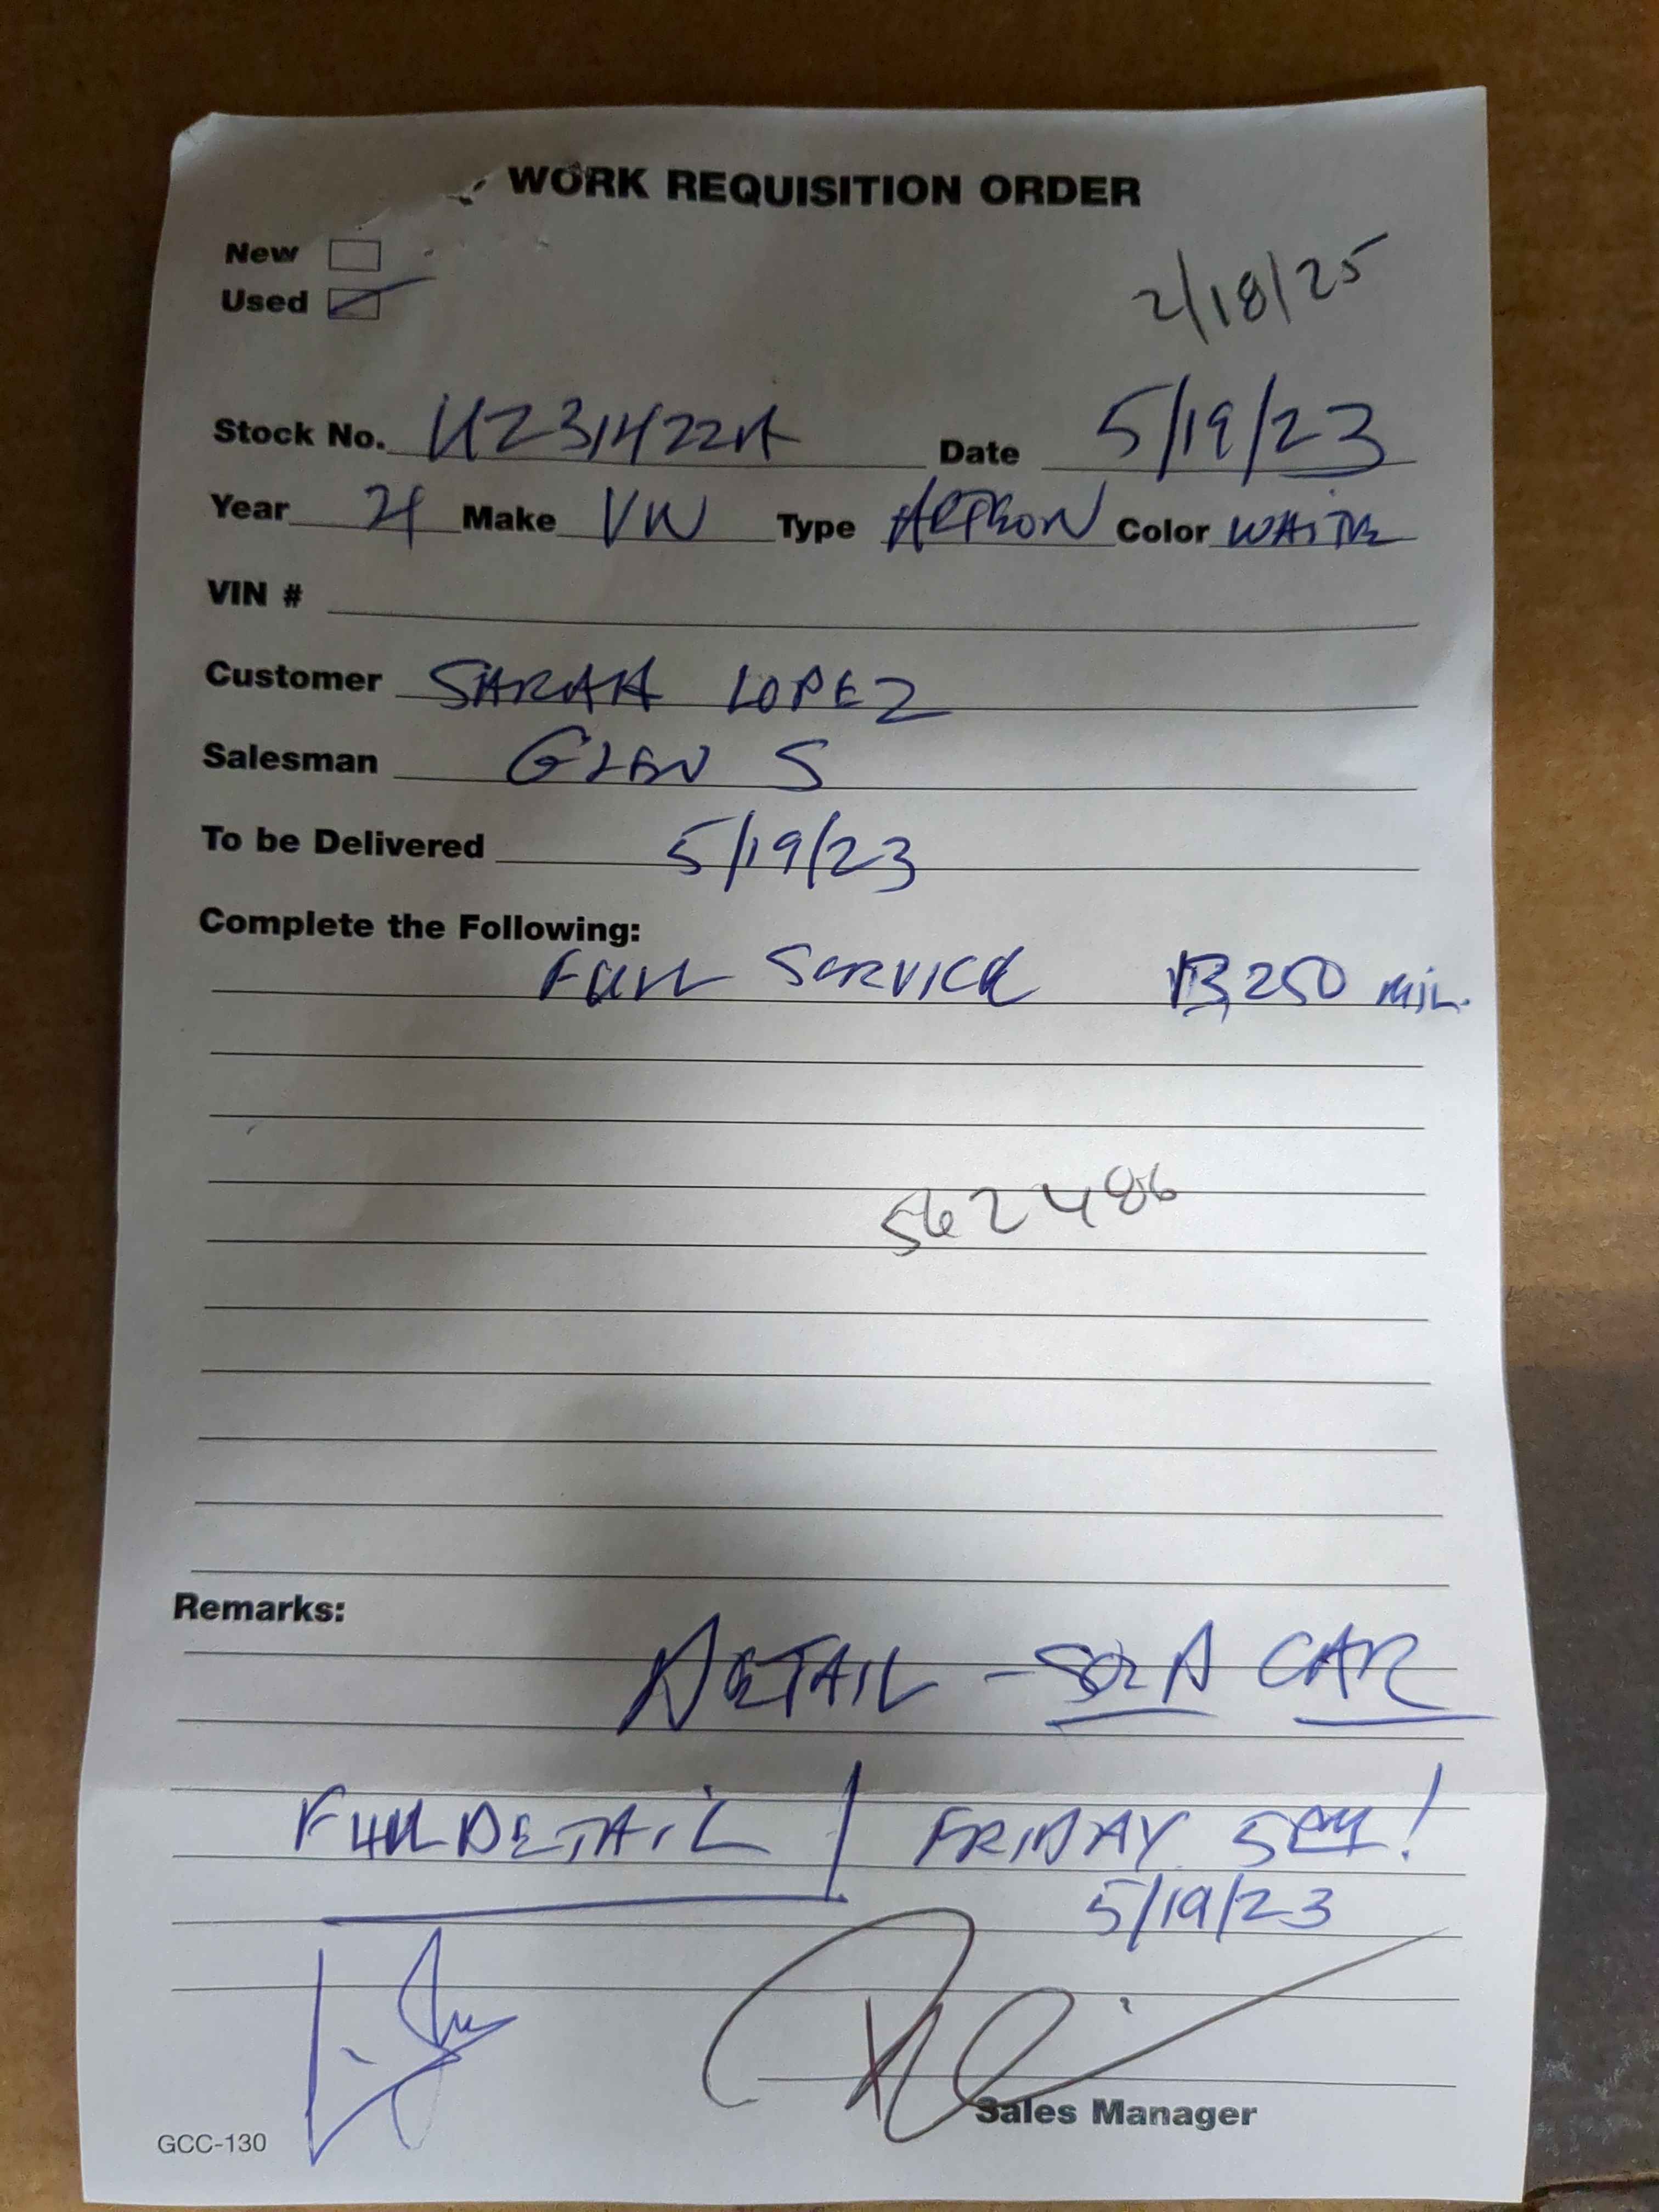 WORK REQUISITION ORDER
New
Used
2/18/25
Stock No. UZ31422A Date 5/19/23
Year 21 Make VW Type ARTEON Color WHITE
VIN #
Customer SARAH LOPEZ
Salesman GLEN S
To be Delivered 5/19/23
Complete the Following:
FULL SERVICE 13,250 MIL.
562486
Remarks:
DETAIL - CAR
FULL DETAIL / FRIDAY 5PM!
5/19/23
Sales Manager
GCC-130